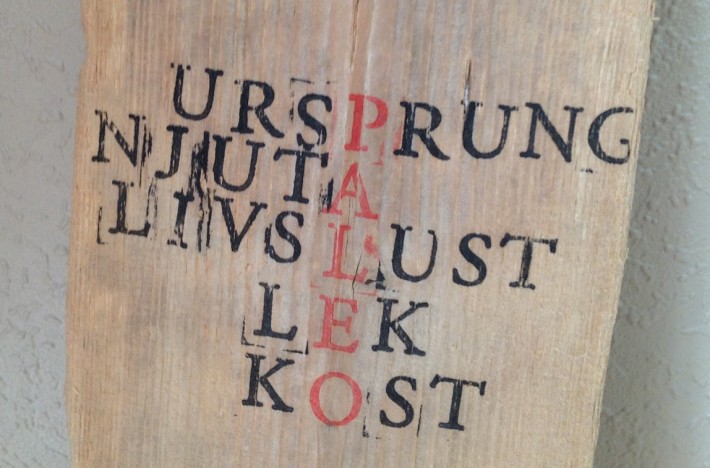 URSPRUNG
NJUTA
LIVSLUST
LEK
KOST